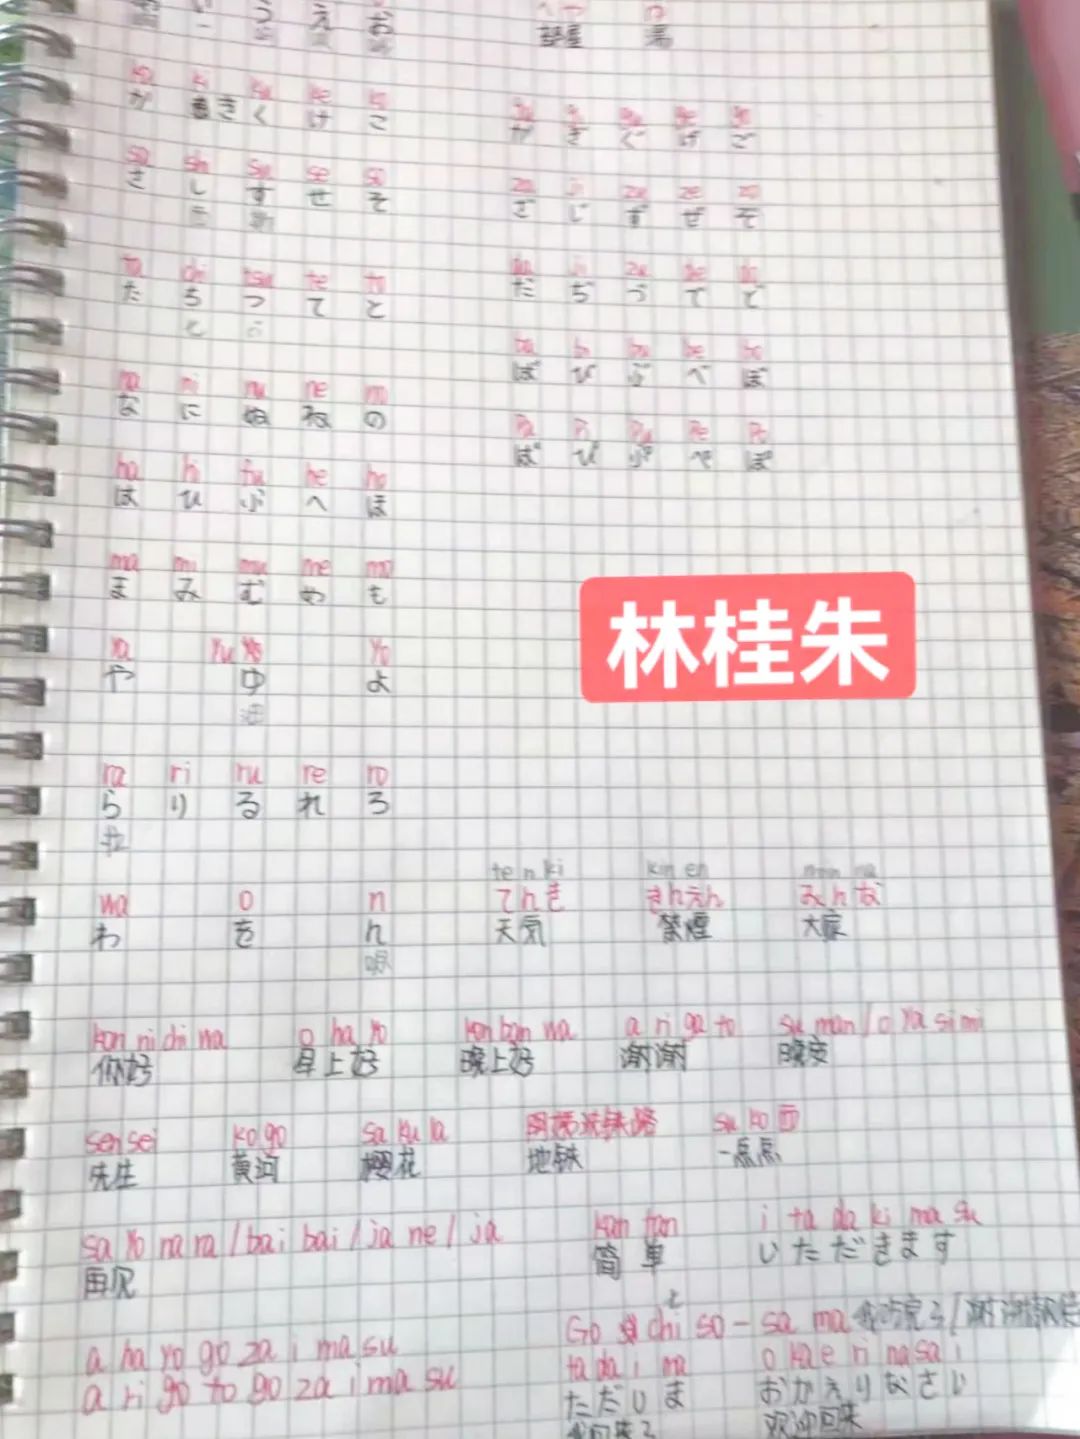 う え お
部屋 湯
ka ki ku ke ko
か き く け こ
ga gi gu ge go
が ぎ ぐ げ ご
sa shi su se so
さ し す せ そ
za ji zu ze zo
ざ じ ず ぜ そ
ta chi tsu te to
た ち つ て と
da ji zu de do
だ ぢ づ て ど
na ni nu ne no
な に ぬ ね の
ba bi bu be bo
ば び ぶ べ ぼ
pa pi pu pe po
ぱ ぴ ぷ ぺ ぽ
ha hi fu he ho
は ひ ふ へ ほ
ma mi mu me mo
ま み む め も
林桂朱
ya yu yo
や ゆ よ
油
ra ri ru re ro
ら り る れ ろ
拉
te n ki kin en min na
wa o n てんき きんえん みんな
わ を ん 天気 禁煙 大家
kon ni chi wa o ha yo kon ban wa a ri ga to su man/o ya si mi
你好 早上好 晚上好 谢谢 晚安
sensei ko go sa ku la su ko
先生 黄河 樱花 地铁 一点点
sa yo na ra/bai bai/ja ne/ja kan tan i ta da ki ma su
再见 简单 いただきます
Go chi so-sa ma
a ha yo go za i ma su ta da i ma o ka e ri na sa i
a ri go to go za i ma su ただいま おかえりなさい
我回来了 欢迎回来